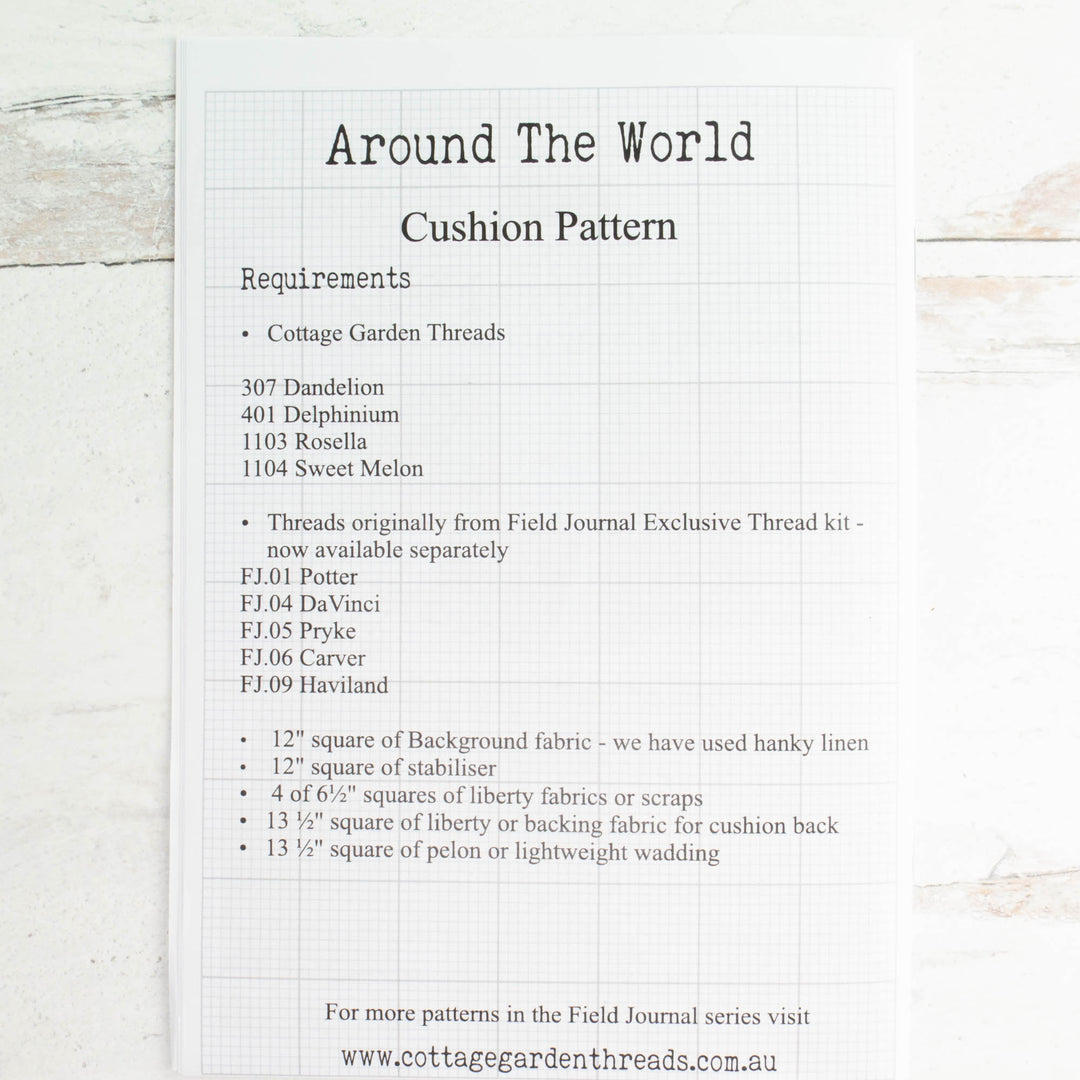 Around The World
Cushion Pattern
Requirements
• Cottage Garden Threads
307 Dandelion
401 Delphinium
1103 Rosella
1104 Sweet Melon
• Threads originally from Field Journal Exclusive Thread kit -
now available separately
FJ.01 Potter
FJ.04 DaVinci
FJ.05 Pryke
FJ.06 Carver
FJ.09 Haviland
• 12" square of Background fabric - we have used hanky linen
• 12" square of stabiliser
• 4 of 6½" squares of liberty fabrics or scraps
• 13 ½" square of liberty or backing fabric for cushion back
• 13 ½" square of pelon or lightweight wadding
For more patterns in the Field Journal series visit
www.cottagegardenthreads.com.au